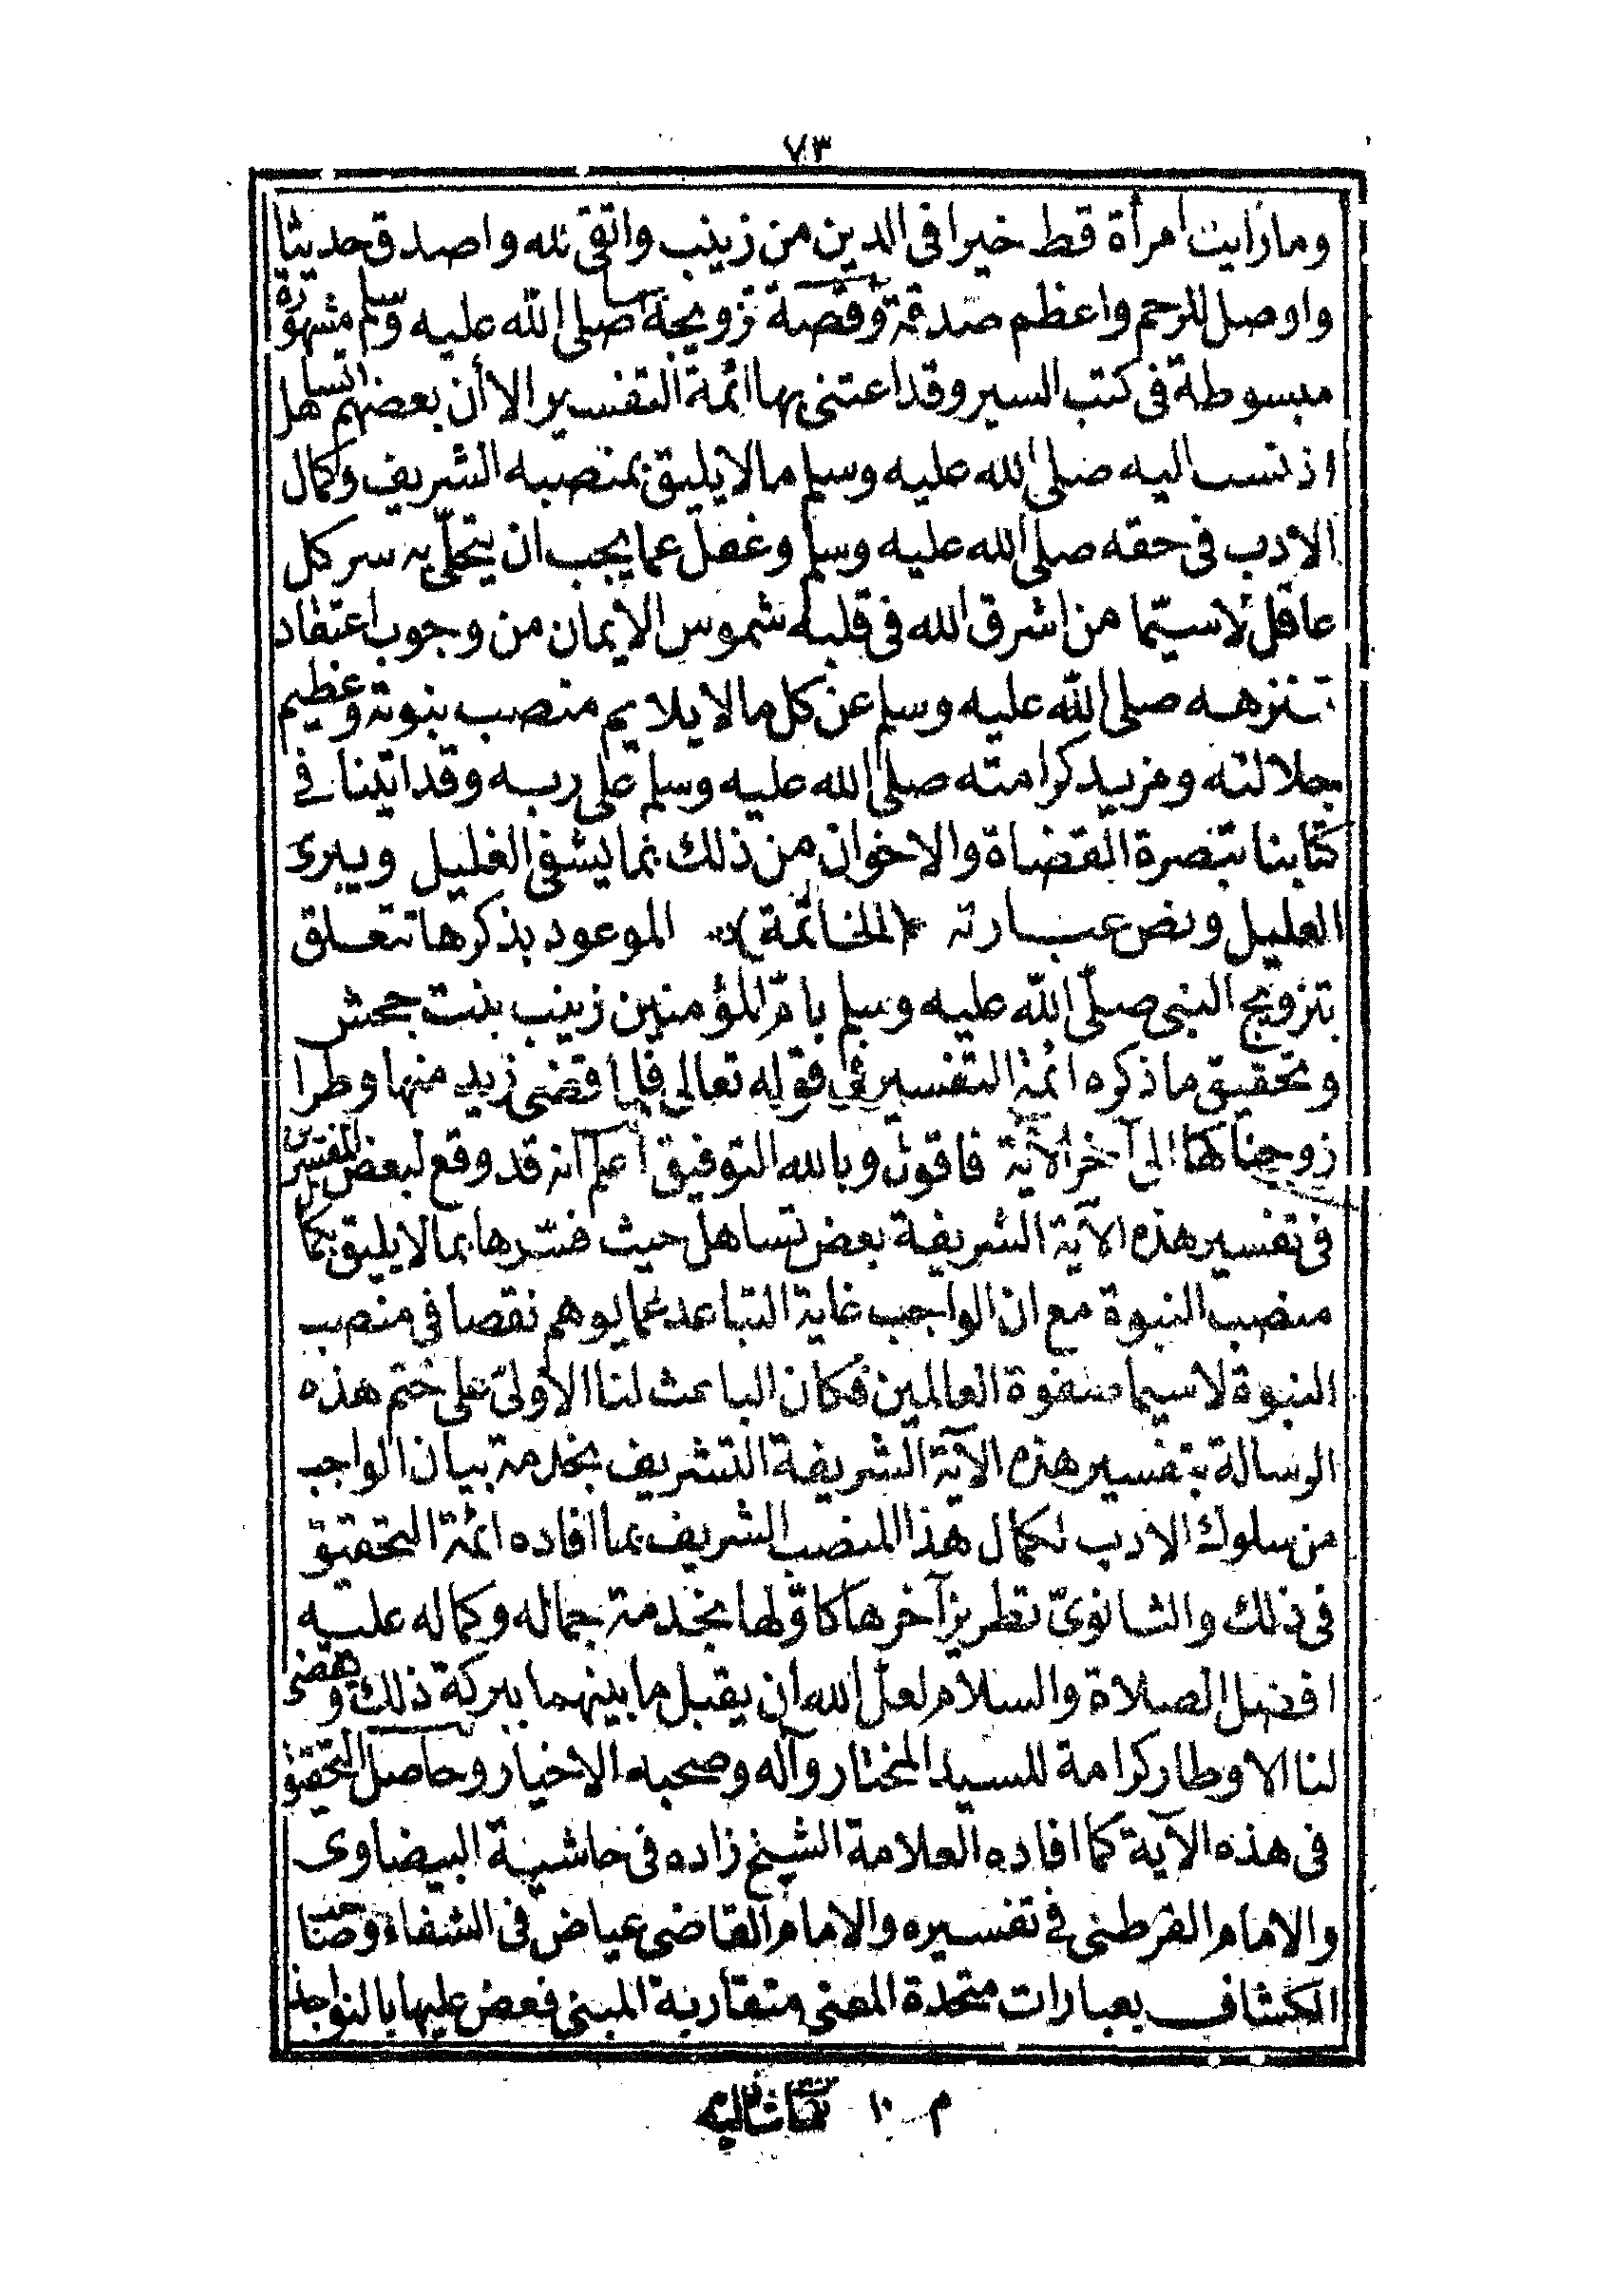 ٧٣
وما رأيت امرأة قط خيرا فى الدين من زينب واتقى لله واصدق حديثا
واوصل للرحم واعظم صدقة وقصة تزويجه بها صلى الله عليه وسلم مشهورة
مبسوطة فى كتب السير وقد اعتنى بها ائمة التفسير الا أن بعضهم تساهل
اذ نسب اليه صلى الله عليه وسلم مالا يليق بمنصبه الشريف وكمال
الادب فى حقه صلى الله عليه وسلم وغفل عما يجب ان يتحلى به سر كل
عاقل لاسيّما من اشرق الله فى قلبه شموس الايمان من وجوب اعتقاد
تنزهه صلى الله عليه وسلم عن كل مالا يلايم منصب نبوته وعظيم
جلالته ومزيد كرامته صلى الله عليه وسلم على ربه وقد اتينا فى
كتابنا تبصرة القضاة والاخوان من ذلك بما يشفى الغليل ويبرئ
العليل ونص عبارته ﴿الخاتمة﴾ الموعود بذكرها تتعلق
بتزويج النبى صلّى الله عليه وسلم بامّ المؤمنين زينب بنت جحش
وتحقيق ما ذكره ائمة التفسير فى قوله تعالى فلما قضى زيد منها وطرا
زوجناكها الى آخر الآية فاقول وبالله التوفيق اعلم انه قد وقع لبعض المفسرين
فى تفسير هذه الآية الشريفة بعض تساهل حيث فسّرها بما لا يليق بكمال
منصب النبوة مع ان الواجب غاية التباعد عما يوهم نقصا فى منصب
النبوة لاسيما صفوة العالمين فكان الباعث لنا الأولىّ على ختم هذه
الرسالة بتفسير هذه الآية الشريفة التشريف بخدمة بيان الواجب
من سلوك الادب لكمال هذا المنصب الشريف بما افاده ائمة التحقيق
فى ذلك والثانوىّ تطريز آخرها كاوّلها بخدمة جماله وكماله عليه
افضل الصلاة والسلام لعل الله ان يقبل ما بينهما ببركة ذلك ويقضى
لنا الاوطار كرامة للسيد المختار وآله وصحبه الاخيار وحاصل التحقيق
فى هذه الآية كما افاده العلامة الشيخ زاده فى حاشية البيضاوى
والامام القرطبى فى تفسيره والامام القاضى عياض فى الشفاء وصاحب
الكشاف بعبارات متحدة المعنى متقاربة المبنى فعض عليها بالنواجذ
م ١٠